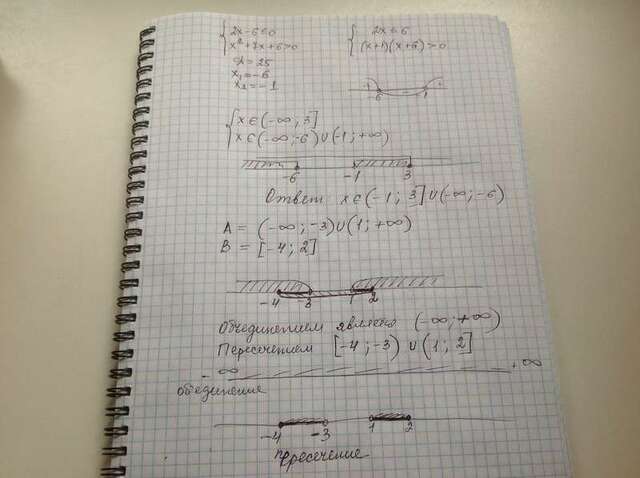 { 2x-6≤0    { 2x≤6
x²+7x+6>0    (x+1)(x+6)>0
D=25
x₁=-6
x₂=-1
-6 -1
{ x∈(-∞; 3]
x∈(-∞;-6)∪(-1;+∞)
-6 -1 3
Ответ x∈(-1; 3]∪(-∞;-6)
A = (-∞;-3)∪(1;+∞)
B = [-4; 2]
-4 -3 1 2
Объединением является (-∞;+∞)
Пересечением [-4;-3) ∪ (1; 2]
-∞ +∞
объединение
-4 -3 1 2
пересечение